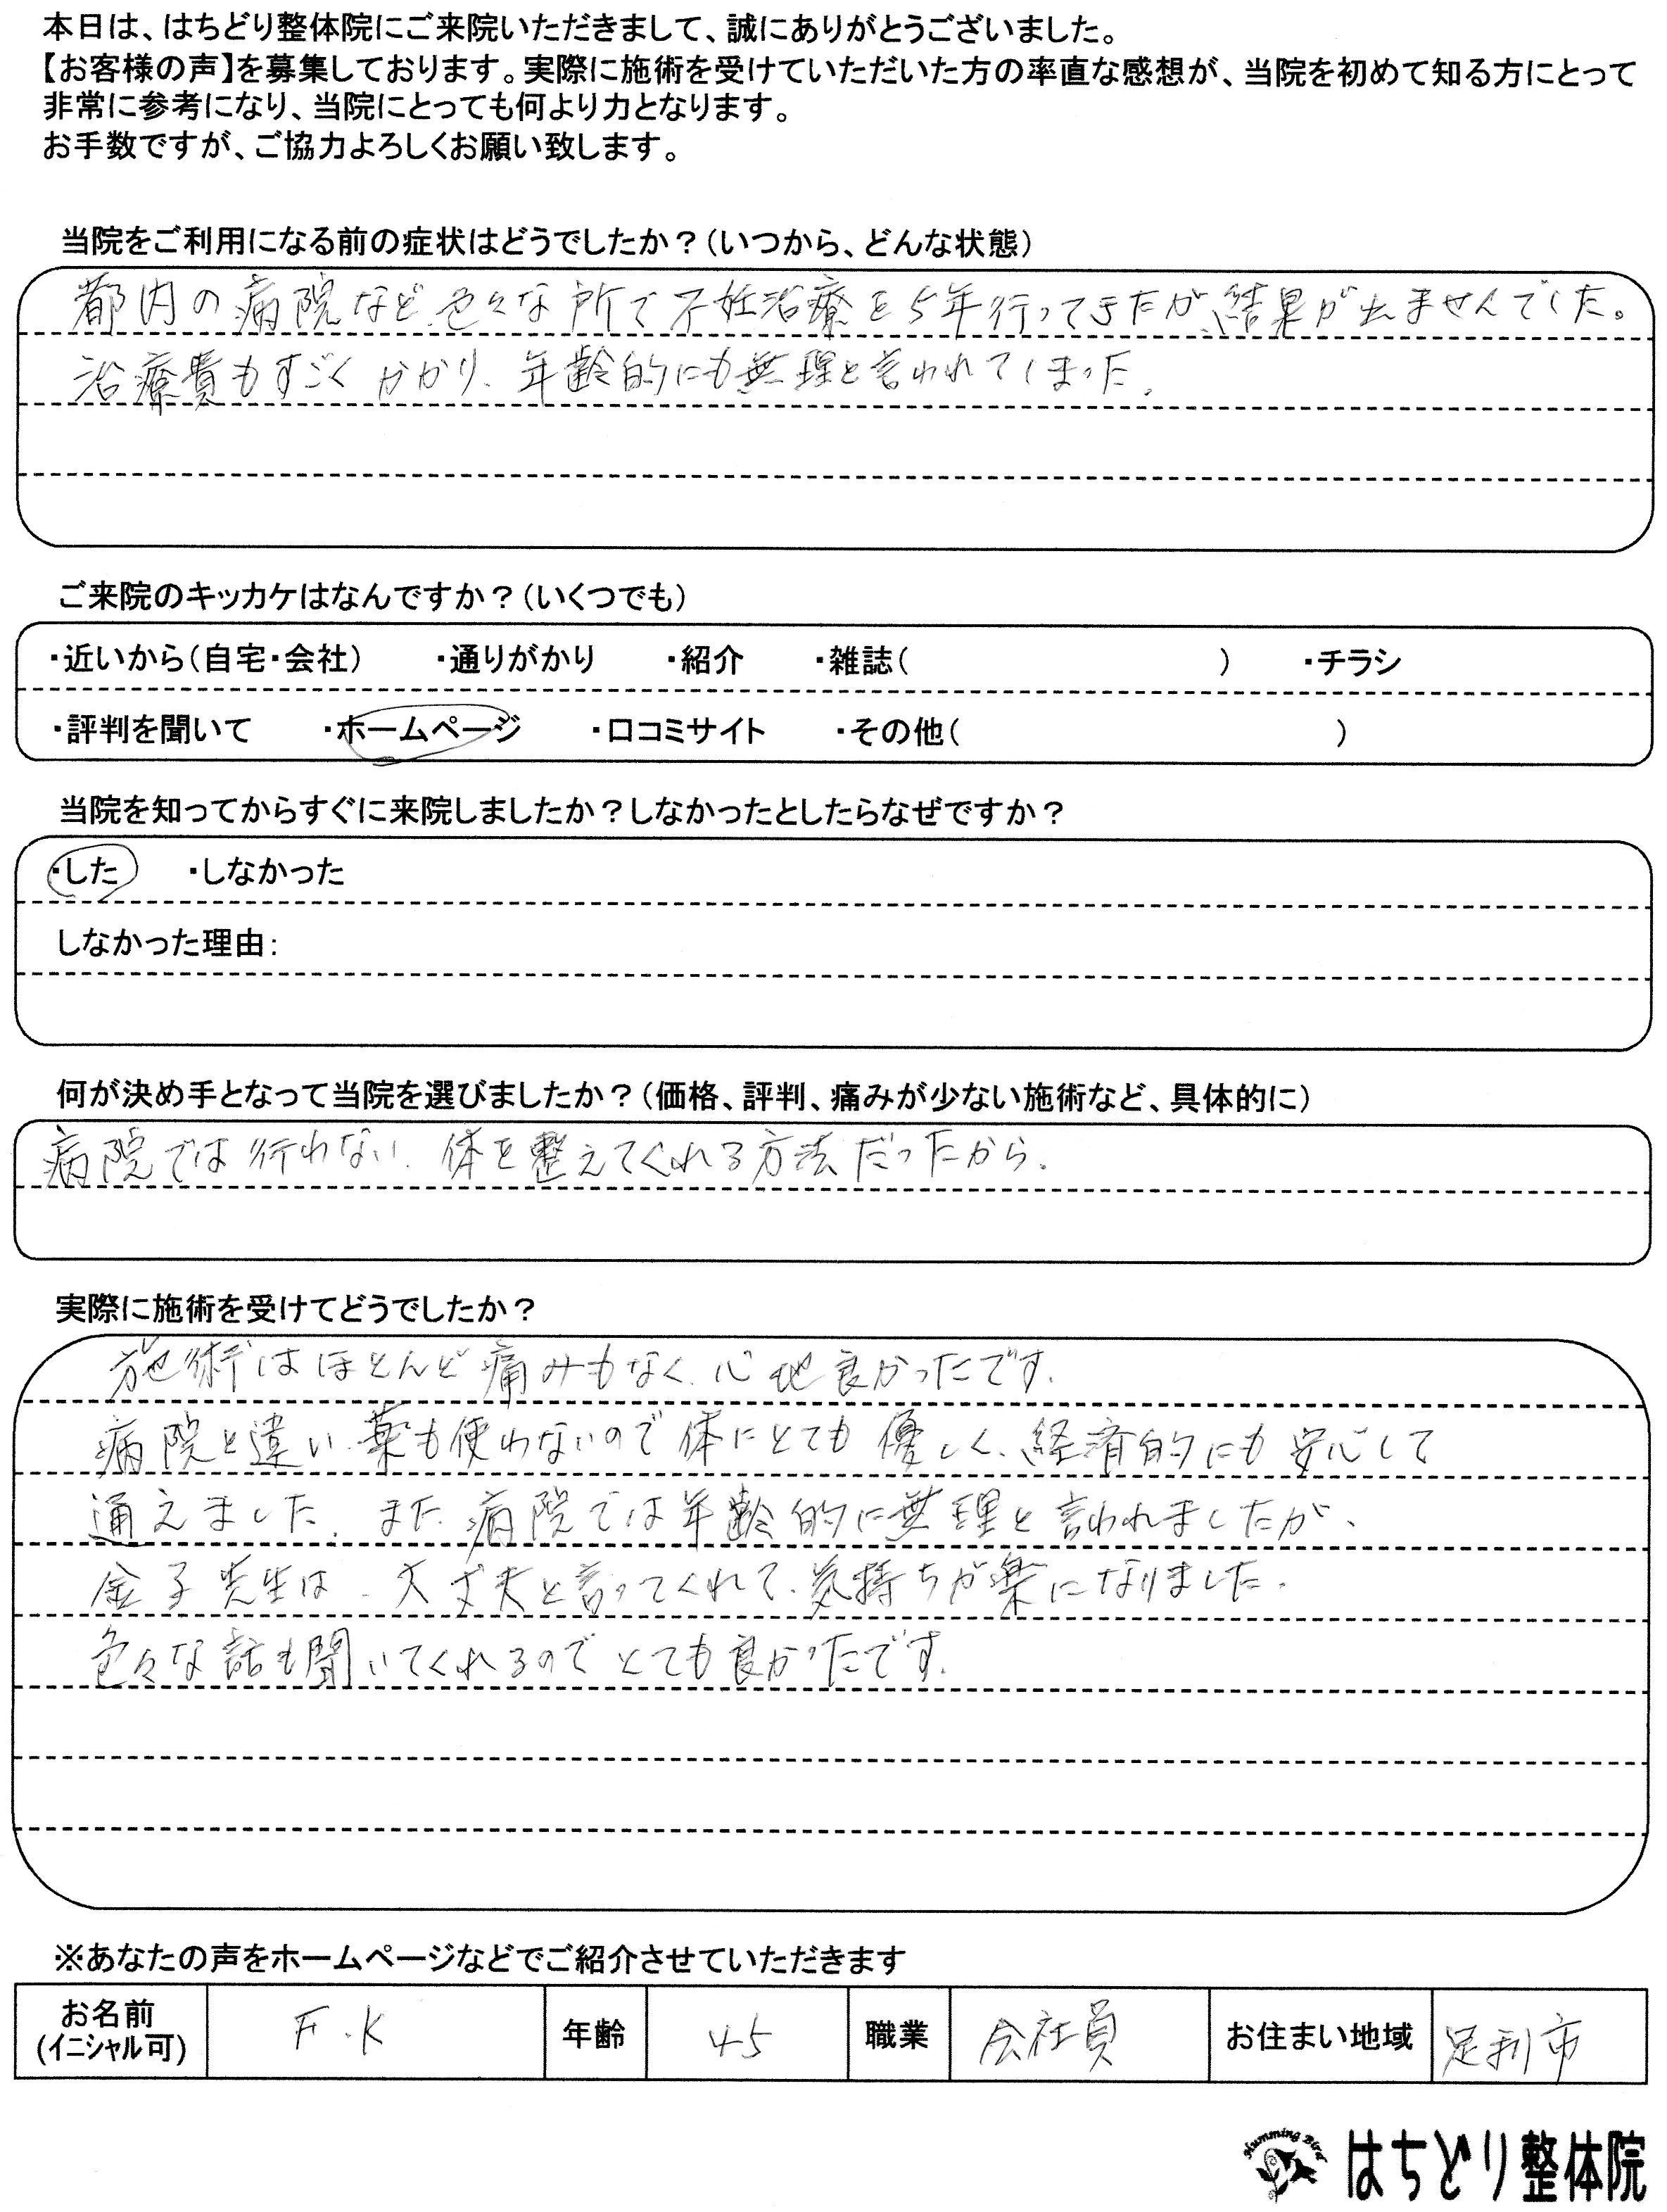 本日は、はちどり整体院にご来院いただきまして、誠にありがとうございました。
【お客様の声】を募集しております。実際に施術を受けていただいた方の率直な感想が、当院を初めて知る方にとって
非常に参考になり、当院にとっても何より力となります。
お手数ですが、ご協力よろしくお願い致します。
当院をご利用になる前の症状はどうでしたか？（いつから、どんな状態）
都内の病院など、色々な所で不妊治療を5年行ってきたが、結果が出ませんでした。
治療費もすごくかかり、年齢的にも無理と言われてしまった。
ご来院のキッカケはなんですか？（いくつでも）
・近いから（自宅・会社） ・通りがかり ・紹介 ・雑誌（ ） ・チラシ
・評判を聞いて ・ホームページ ・口コミサイト ・その他（ ）
当院を知ってからすぐに来院しましたか？しなかったとしたらなぜですか？
・した ・しなかった
しなかった理由：
何が決め手となって当院を選びましたか？（価格、評判、痛みが少ない施術など、具体的に）
病院では行わない、体を整えてくれる方法だったから。
実際に施術を受けてどうでしたか？
施術はほとんど痛みもなく、心地良かったです。
病院と違い、薬も使わないので体にとても優しく、経済的にも安心して
通えました。また、病院では年齢的に無理と言われましたが、
金子先生は、大丈夫と言ってくれて、気持ちが楽になりました。
色々な話も聞いてくれるのでとても良かったです。
※あなたの声をホームページなどでご紹介させていただきます
お名前 F.K 年齢 45 職業 会社員 お住まい地域 足利市
(イニシャル可)
Humming Bird はちどり整体院